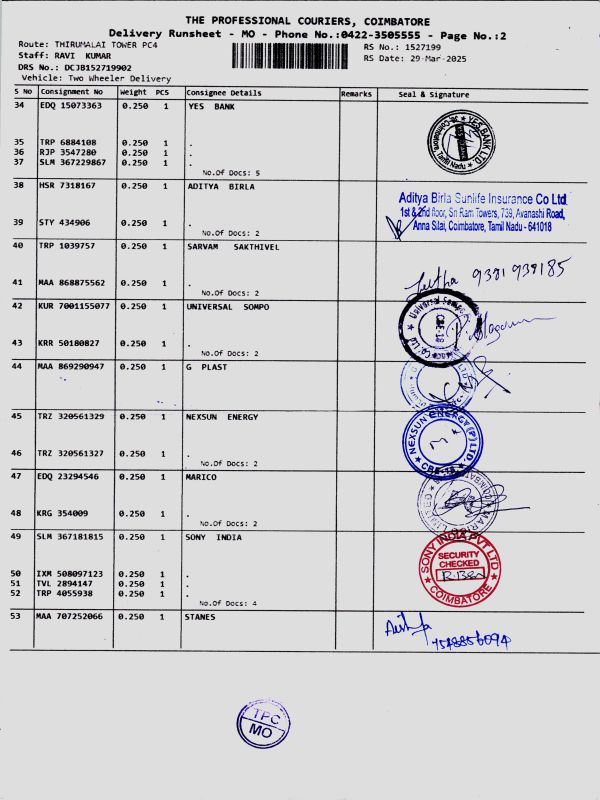 THE PROFESSIONAL COURIERS, COIMBATORE
Delivery Runsheet - MO - Phone No.:0422-3505555 - Page No.:2
Route: THIRUMALAI TOWER PC4
RS No.: 1527199
Staff: RAVI KUMAR
RS Date: 29-Mar-2025
DRS No.: DCJB152719902
Vehicle: Two Wheeler Delivery
S No Consignment No Weight PCS Consignee Details Remarks Seal & Signature
34 EDQ 15073363 0.250 1 YES BANK
YES BANK LTD.
35 TRP 6884108 0.250 1 .
36 RJP 3547280 0.250 1 .
37 SLM 367229867 0.250 1 .
No.Of Docs: 5
38 HSR 7318167 0.250 1 ADITYA BIRLA
Aditya Birla Sunlife Insurance Co Ltd
1st & 2nd floor, Sri Ram Towers, 739, Avanashi Road,
Anna Silai, Coimbatore, Tamil Nadu - 641018
39 STY 434906 0.250 1 .
No.Of Docs: 2
40 TRP 1039757 0.250 1 SARVAM SAKTHIVEL
41 MAA 868875562 0.250 1 .
No.Of Docs: 2
42 KUR 7001155077 0.250 1 UNIVERSAL SOMPO
Universal Sompo
CBE-18
43 KRR 50180827 0.250 1 .
No.Of Docs: 2
44 MAA 869290947 0.250 1 G PLAST
45 TRZ 320561329 0.250 1 NEXSUN ENERGY
NEXSUN ENERGY (P) LTD.
CBE-18
46 TRZ 320561327 0.250 1 .
No.Of Docs: 2
47 EDQ 23294546 0.250 1 MARICO
MARICO LIMITED
48 KRG 354009 0.250 1 .
No.Of Docs: 2
49 SLM 367181815 0.250 1 SONY INDIA
SONY INDIA PVT LTD
SECURITY
CHECKED
COIMBATORE
50 IXM 508097123 0.250 1 .
51 TVL 2894147 0.250 1 .
52 TRP 4055938 0.250 1 .
No.Of Docs: 4
53 MAA 707252066 0.250 1 STANES
TPC
MO